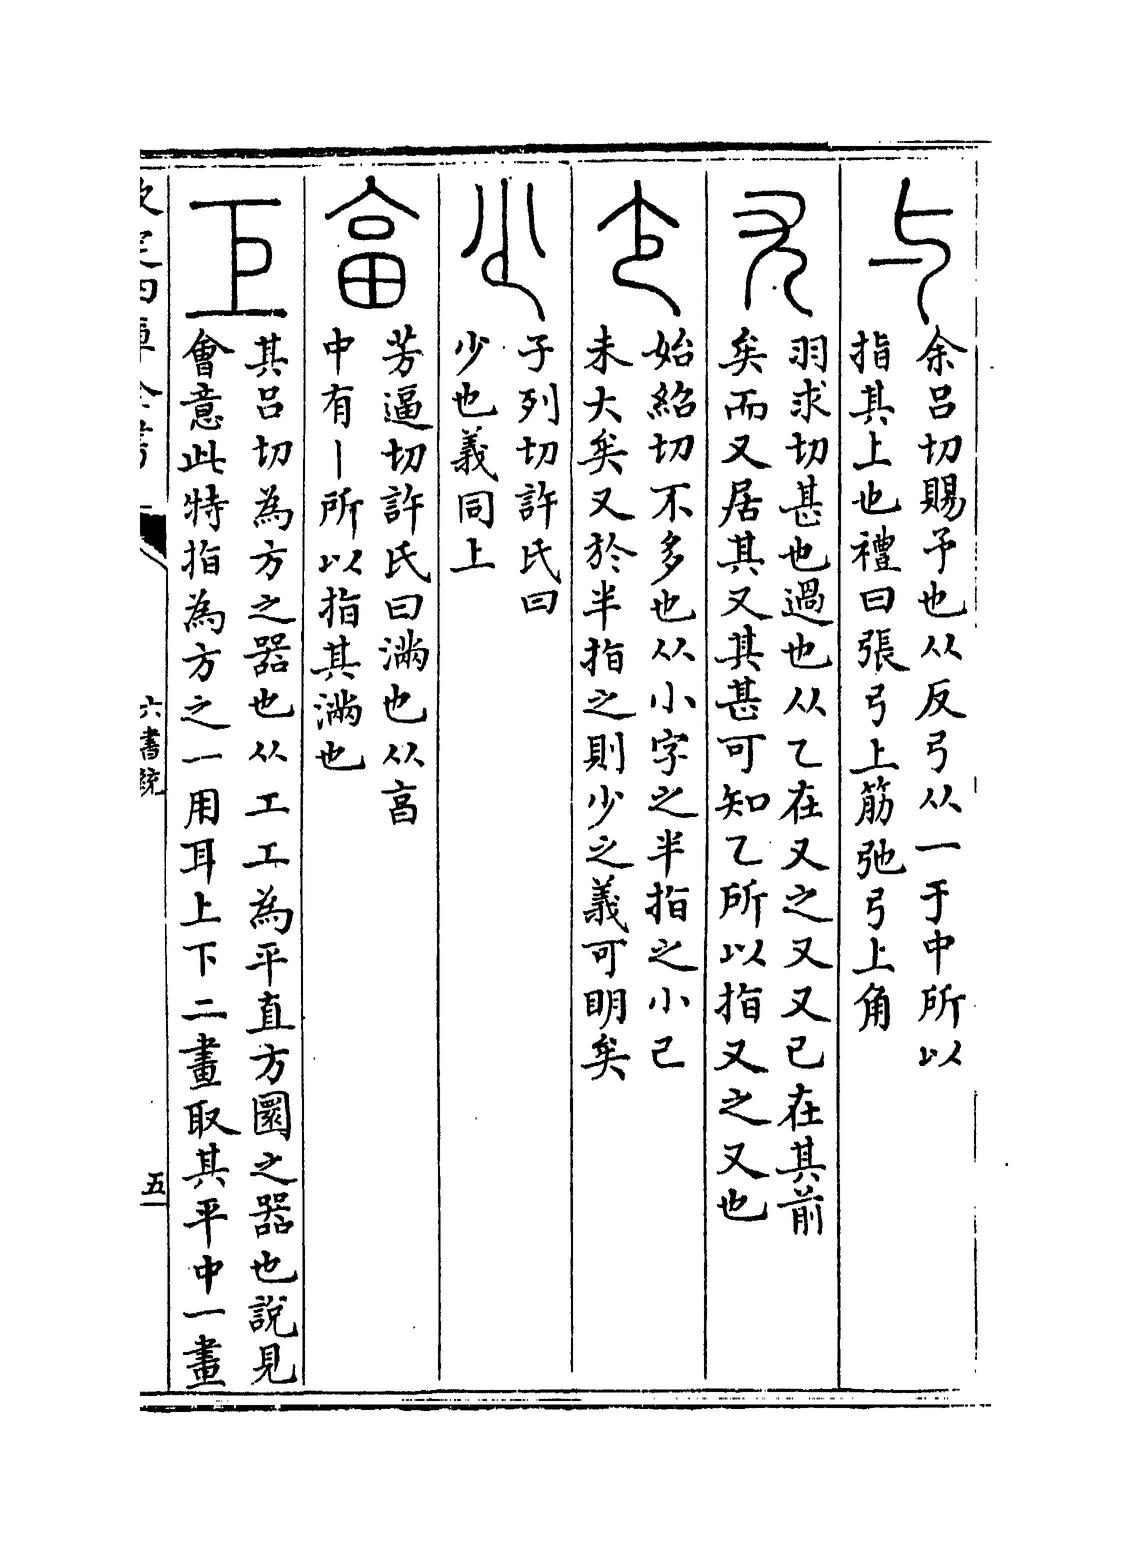 与
余呂切賜予也从反弓从一于中所以
指其上也禮曰張弓上筋弛弓上角
尤
羽求切甚也過也从乙在又之又又已在其前
矣而又居其又其甚可知乙所以指又之又也
少
始紹切不多也从小字之半指之小己
未大矣又於半指之則少之義可明矣
尐
子列切許氏曰
少也義同上
畐
芳逼切許氏曰滿也从亯
中有丨所以指其滿也
巨
其呂切為方之器也从工工為平直方圜之器也說見
會意此特指為方之一用耳上下二畫取其平中一畫
欽定四庫全書
六書統
五